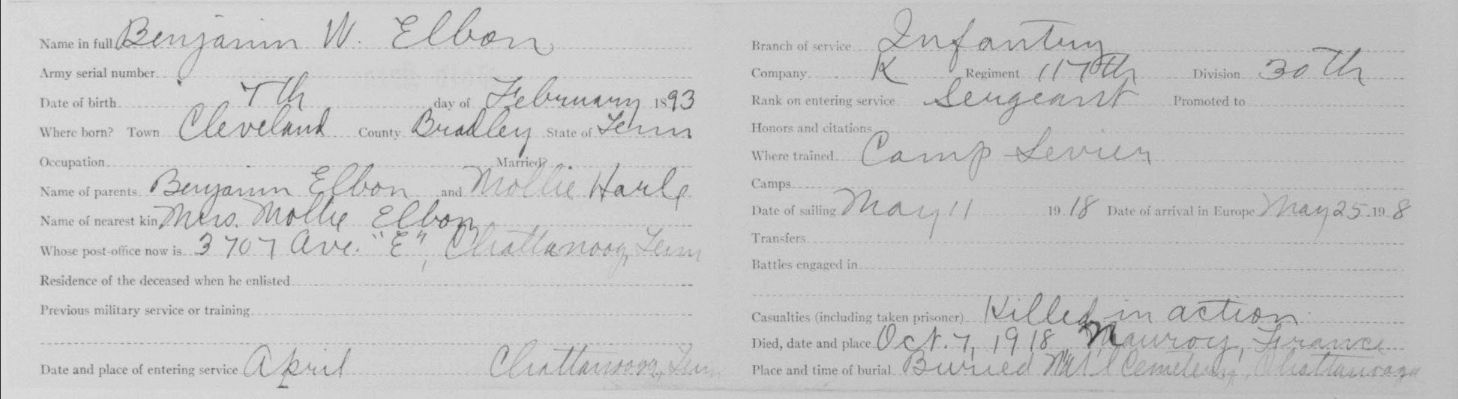 Name in full Benjamin W. Elbon
Army serial number
Date of birth 7th day of February 1893
Where born? Town Cleveland County Bradley State of Tenn
Occupation Married?
Name of parents Benjamin Elbon and Mollie Harle
Name of nearest kin Mrs. Mollie Elbon
Whose post-office now is 3707 Ave. "E", Chattanooga, Tenn
Residence of the deceased when he enlisted
Previous military service or training
Date and place of entering service April Chattanooga, Tenn
Branch of service Infantry
Company K Regiment 117th Division 30th
Rank on entering service Sergeant Promoted to
Honors and citations
Where trained Camp Sevier
Camps
Date of sailing May 11 1918 Date of arrival in Europe May 25 1918
Transfers
Battles engaged in
Casualties (including taken prisoner) Killed in action
Died, date and place Oct. 7, 1918 Mauroy, France
Place and time of burial Buried Nat'l Cemetery, Chattanooga